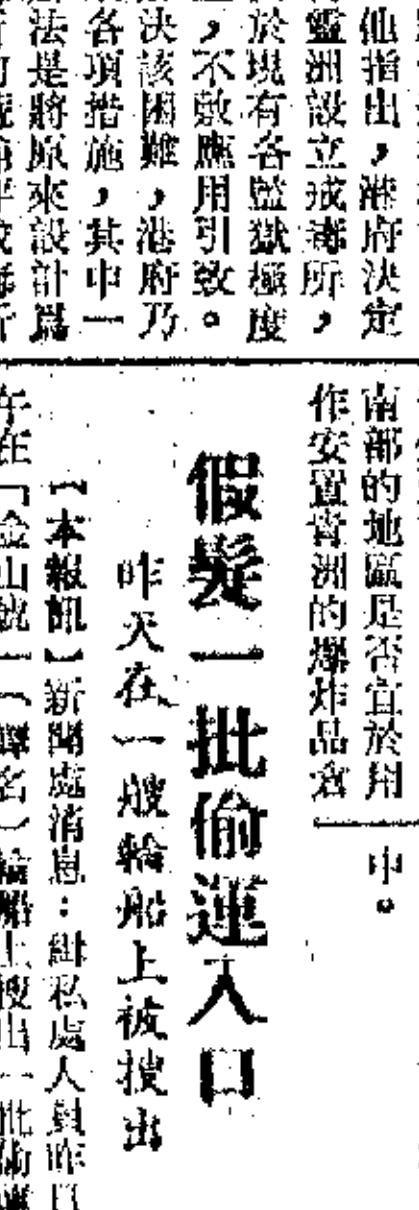 他指出，港府決定
靈洲設立戒毒所，
於現有各監獄極度
，不敷應用引致。
決該困難，港府乃
各項措施，其中一
法是將原來設計爲
南部的地區是否宜於用
作安置青洲的爆炸品倉
中。
假髮一批偷運入口
昨天在一艘輪船上被搜出
【本報訊】新聞處消息：緝私處人員昨日
午在「金山號」（譯名）輪船上搜出一批偷運